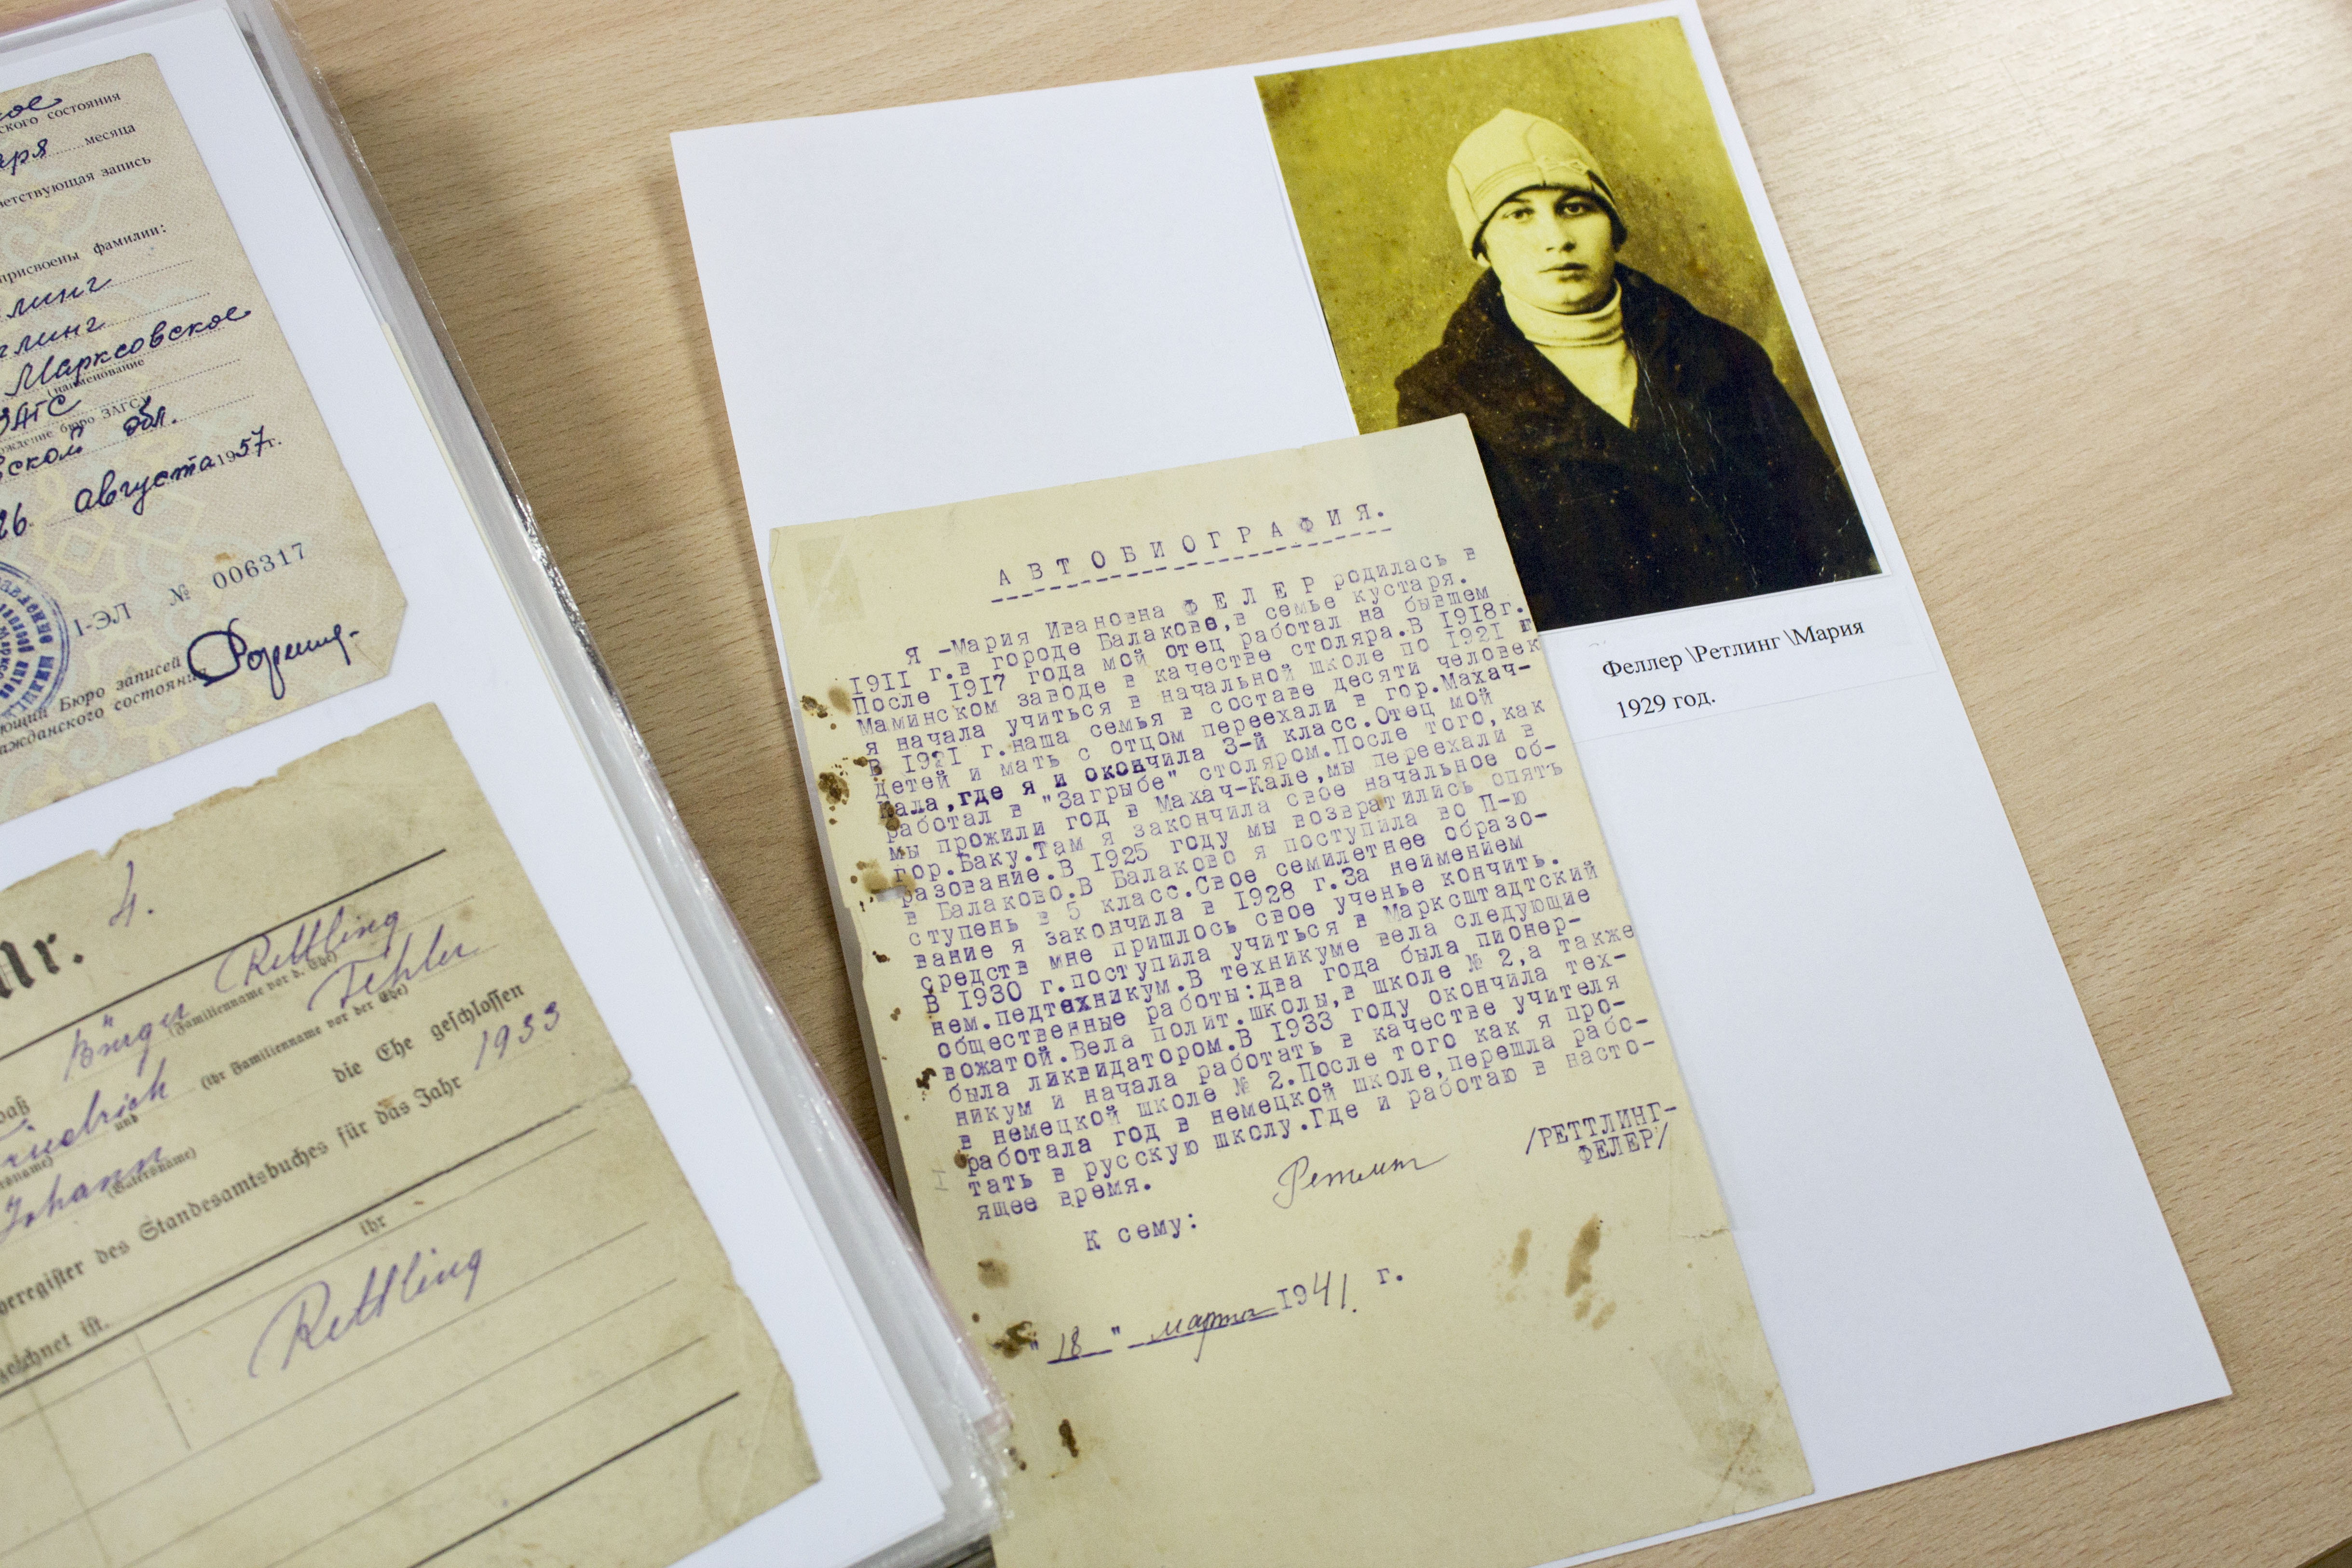 ского состояния
месяца
ветствующая запись
присвоены фамилии:
линг
тлинг
Марксовское
(наименование
ЗАГС
ждение бюро ЗАГС)
вской обл.
26 августа 1957 г.
I-ЭЛ № 006317
Бюро записей
жданского состояния
Nr. 4.
Bürger Rettling
(Familienname vor d. Ehe)
Fehler
(Ihr Familienname vor der Ehe)
daß
und
die Ehe geschlossen
Johann
(Vatersname)
heregister des Standesamtsbuches für das Jahr 1933
zeichnet ist.
ihr
Rettling
АВТОБИОГРАФИЯ.
Я -Мария Ивановна ФЕЛЕР родилась в
1911 г.в городе Балакове,в семье кустаря.
После 1917 года мой отец работал на бывшем
Маминском заводе в качестве столяра.В 1918г.
я начала учиться в начальной школе по 1921 г
В 1921 г.наша семья в составе десяти человек
детей и мать с отцом переехали в гор.Махач-
Кала,где я и окончила 3-й класс.Отец мой
работал в "Загрыбе" столяром.После того,как
мы прожили год в Махач-Кале,мы переехали в
гор.Баку.Там я закончила свое начальное об-
разование.В 1925 году мы возвратились опять
в Балаково.В Балаково я поступила во П-ю
ступень в 5 класс.Свое семилетнее образо-
вание я закончила в 1928 г.За неимением
средств мне пришлось свое ученье кончить.
В 1930 г.поступила учиться в Марксштадтский
нем.педтехникум.В техникуме вела следующие
общественные работы:два года была пионер-
вожатой.Вела полит.школы,в школе № 2,а также
была ликвидатором.В 1933 году окончила тех-
никум и начала работать в качестве учителя
в немецкой школе № 2.После того как я про-
работала год в немецкой школе,перешла рабо-
тать в русскую школу.Где и работаю в насто-
ящее время.
/РЕТТЛИНГ-
ФЕЛЕР/
К сему:
"18" марта 1941. г.
Феллер \Ретлинг \Мария
1929 год.